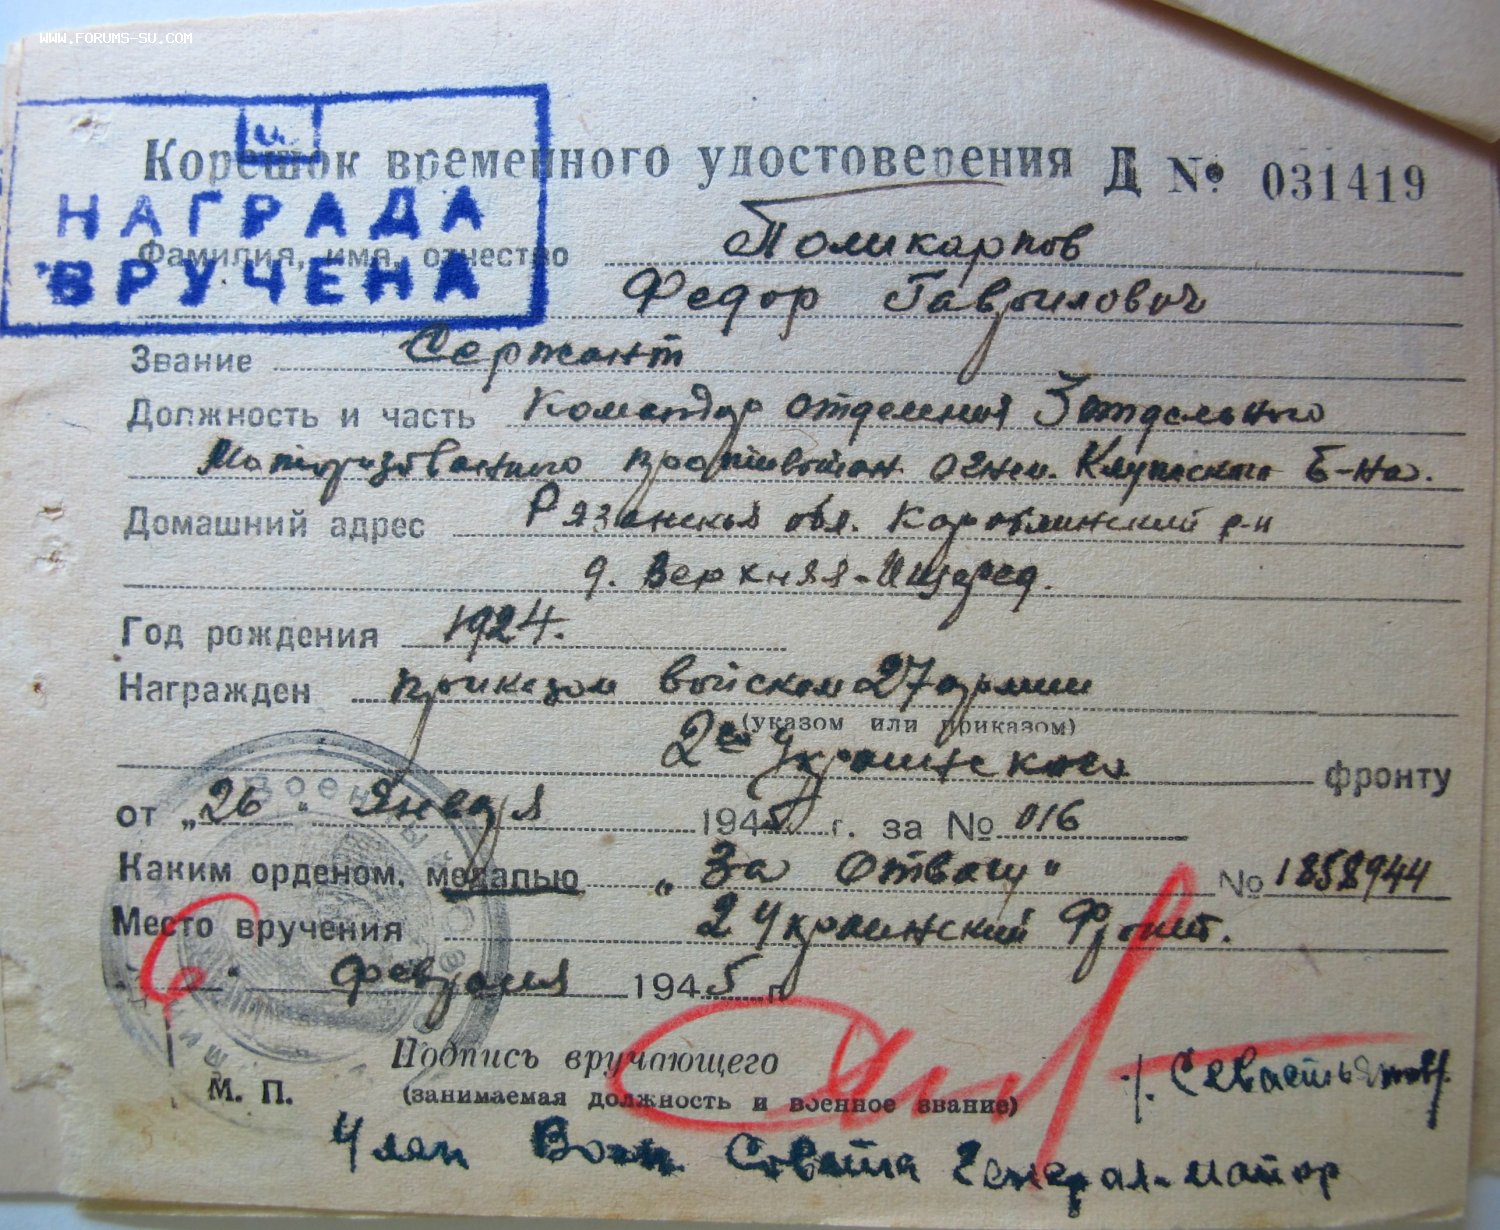 WWW.FORUMS-SU.COM
Корешок временного удостоверения Д № 031419
НАГРАДА
ВРУЧЕНА
Фамилия, имя, отчество Поликарпов
Федор Гаврилович
Звание Сержант
Должность и часть Командир отделения 3 отдельного
Моторизованного противотан. огнем. Б-на.
Домашний адрес Рязанская обл. Кораблинский р-н
д. Верхняя-
Год рождения 1924.
Награжден приказом войскам 27 армии
(указом или приказом)
2го Украинского фронту
от „26" Января 1945 г. за № 016
Каким орденом, медалью „За Отвагу" № 1858944
Место вручения 2 Украинский Фронт.
6 " февраля 1945 г.
Подпись вручающего
(занимаемая должность и военное звание)
М. П.
Член Воен. Совета Генерал-майор